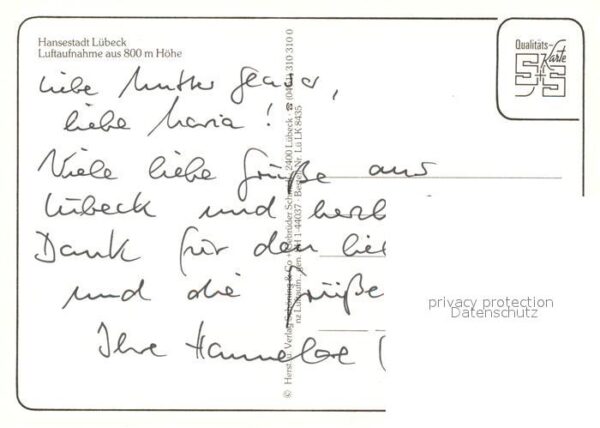 Hansestadt Lübeck
Luftaufnahme aus 800 m Höhe
Qualitäts-Karte
S+S
Liebe Mutter
liebe Maria!
Viele liebe Grüße aus
Lübeck und
Dank für den
und die Grüße
Ihre Hannelore (
© Herst. u. Verlag Schöning & Co + Gebrüder Schmidt 2400 Lübeck · ☎ (0451) 310 310 0
Bestell-Nr. Lü LK 8435
privacy protection
Datenschutz